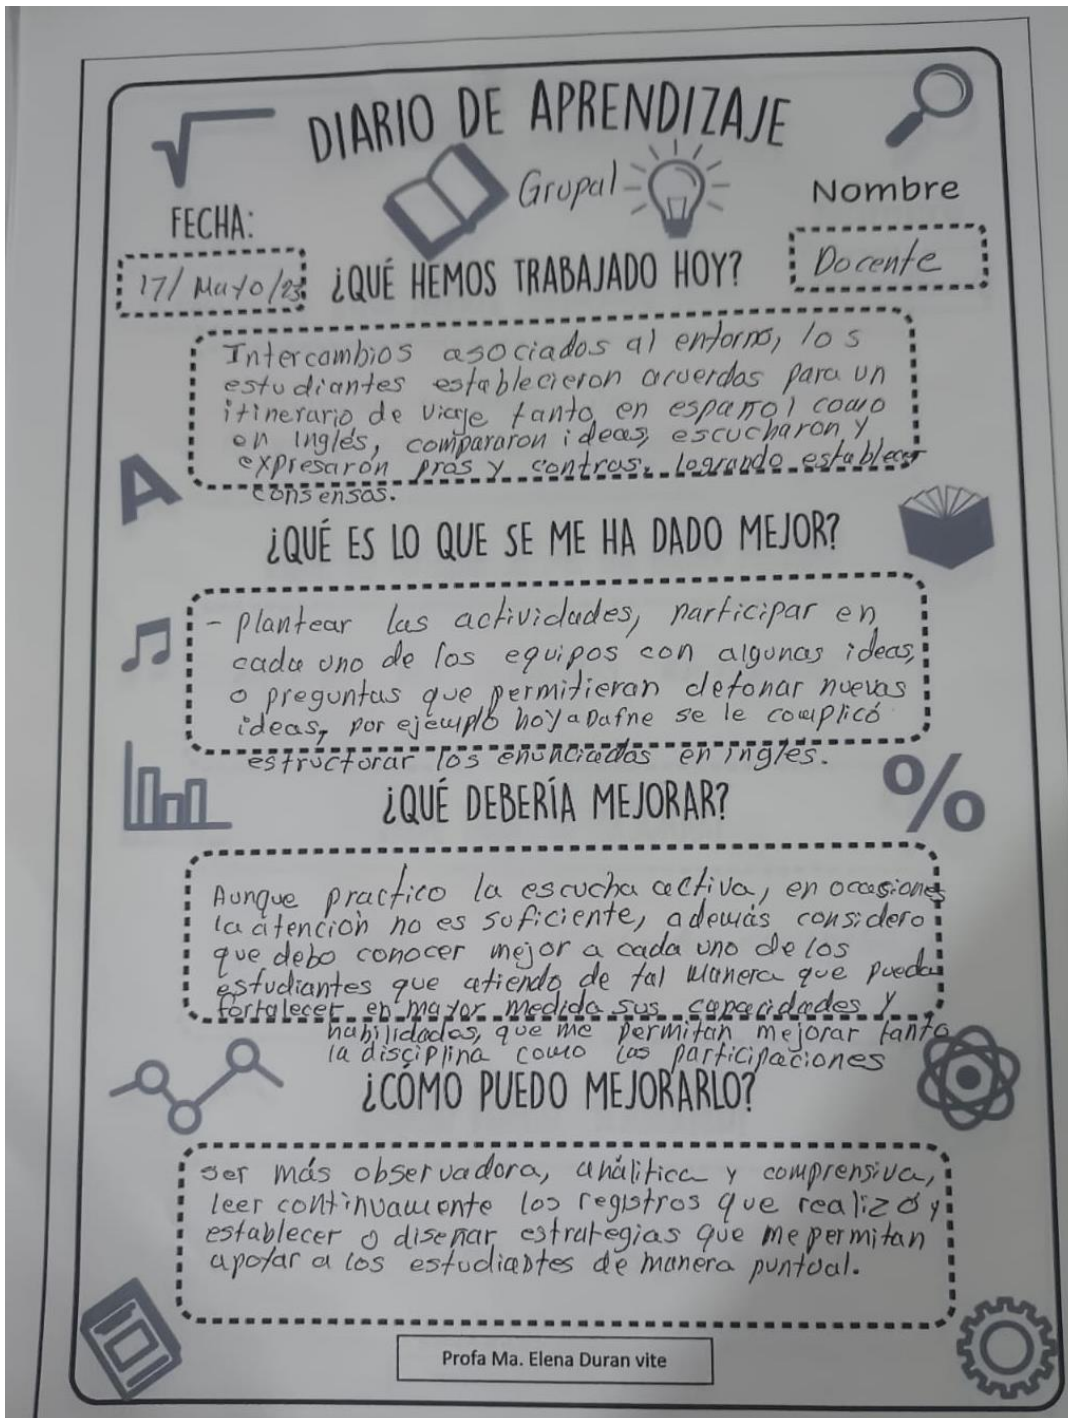 DIARIO DE APRENDIZAJE
Grupal
Nombre
FECHA:
Docente
17/Mayo/23
¿QUÉ HEMOS TRABAJADO HOY?
Intercambios asociados al entorno, los
estudiantes establecieron acuerdos para un
itinerario de viaje, tanto en español como
en Inglés, compararon ideas, escucharon y
expresaron pros y contras, logrando establecer
consensos.
A
¿QUÉ ES LO QUE SE ME HA DADO MEJOR?
- plantear las actividades, participar en
cada uno de los equipos con algunas ideas,
o preguntas que permitieran detonar nuevas
ideas, por ejemplo hoy a Dafne se le complicó
estructorar los enunciados en inglés.
%
¿QUÉ DEBERÍA MEJORAR?
Aunque practico la escucha activa, en ocasiones
la atención no es suficiente, además considero
que debo conocer mejor a cada uno de los
estudiantes que atiendo de tal manera que pueda
fortalecer en mayor medida sus capacidades y
habilidades, que me permitan mejorar tanto
la disciplina como las participaciones
¿CÓMO PUEDO MEJORARLO?
ser más observadora, análitica y comprensiva,
leer continuamente los registros que realizó y
establecer o diseñar estrategias que me permitan
apoyar a los estudiantes de manera puntual.
Profa Ma. Elena Duran vite